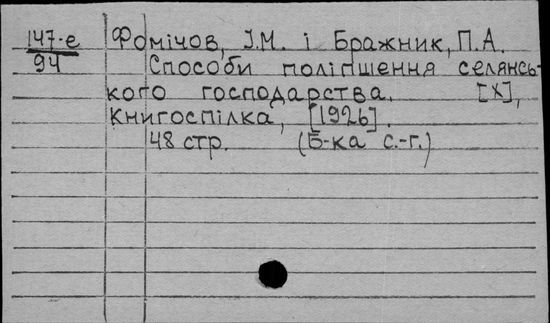 147-е Фомічов, І.М. і Бражник, П.А.
94 Способи поліпшення селянсь-
кого господарства. [Х],
Книгоспілка, [1926].
48 стр. (Б-ка с.-г.)